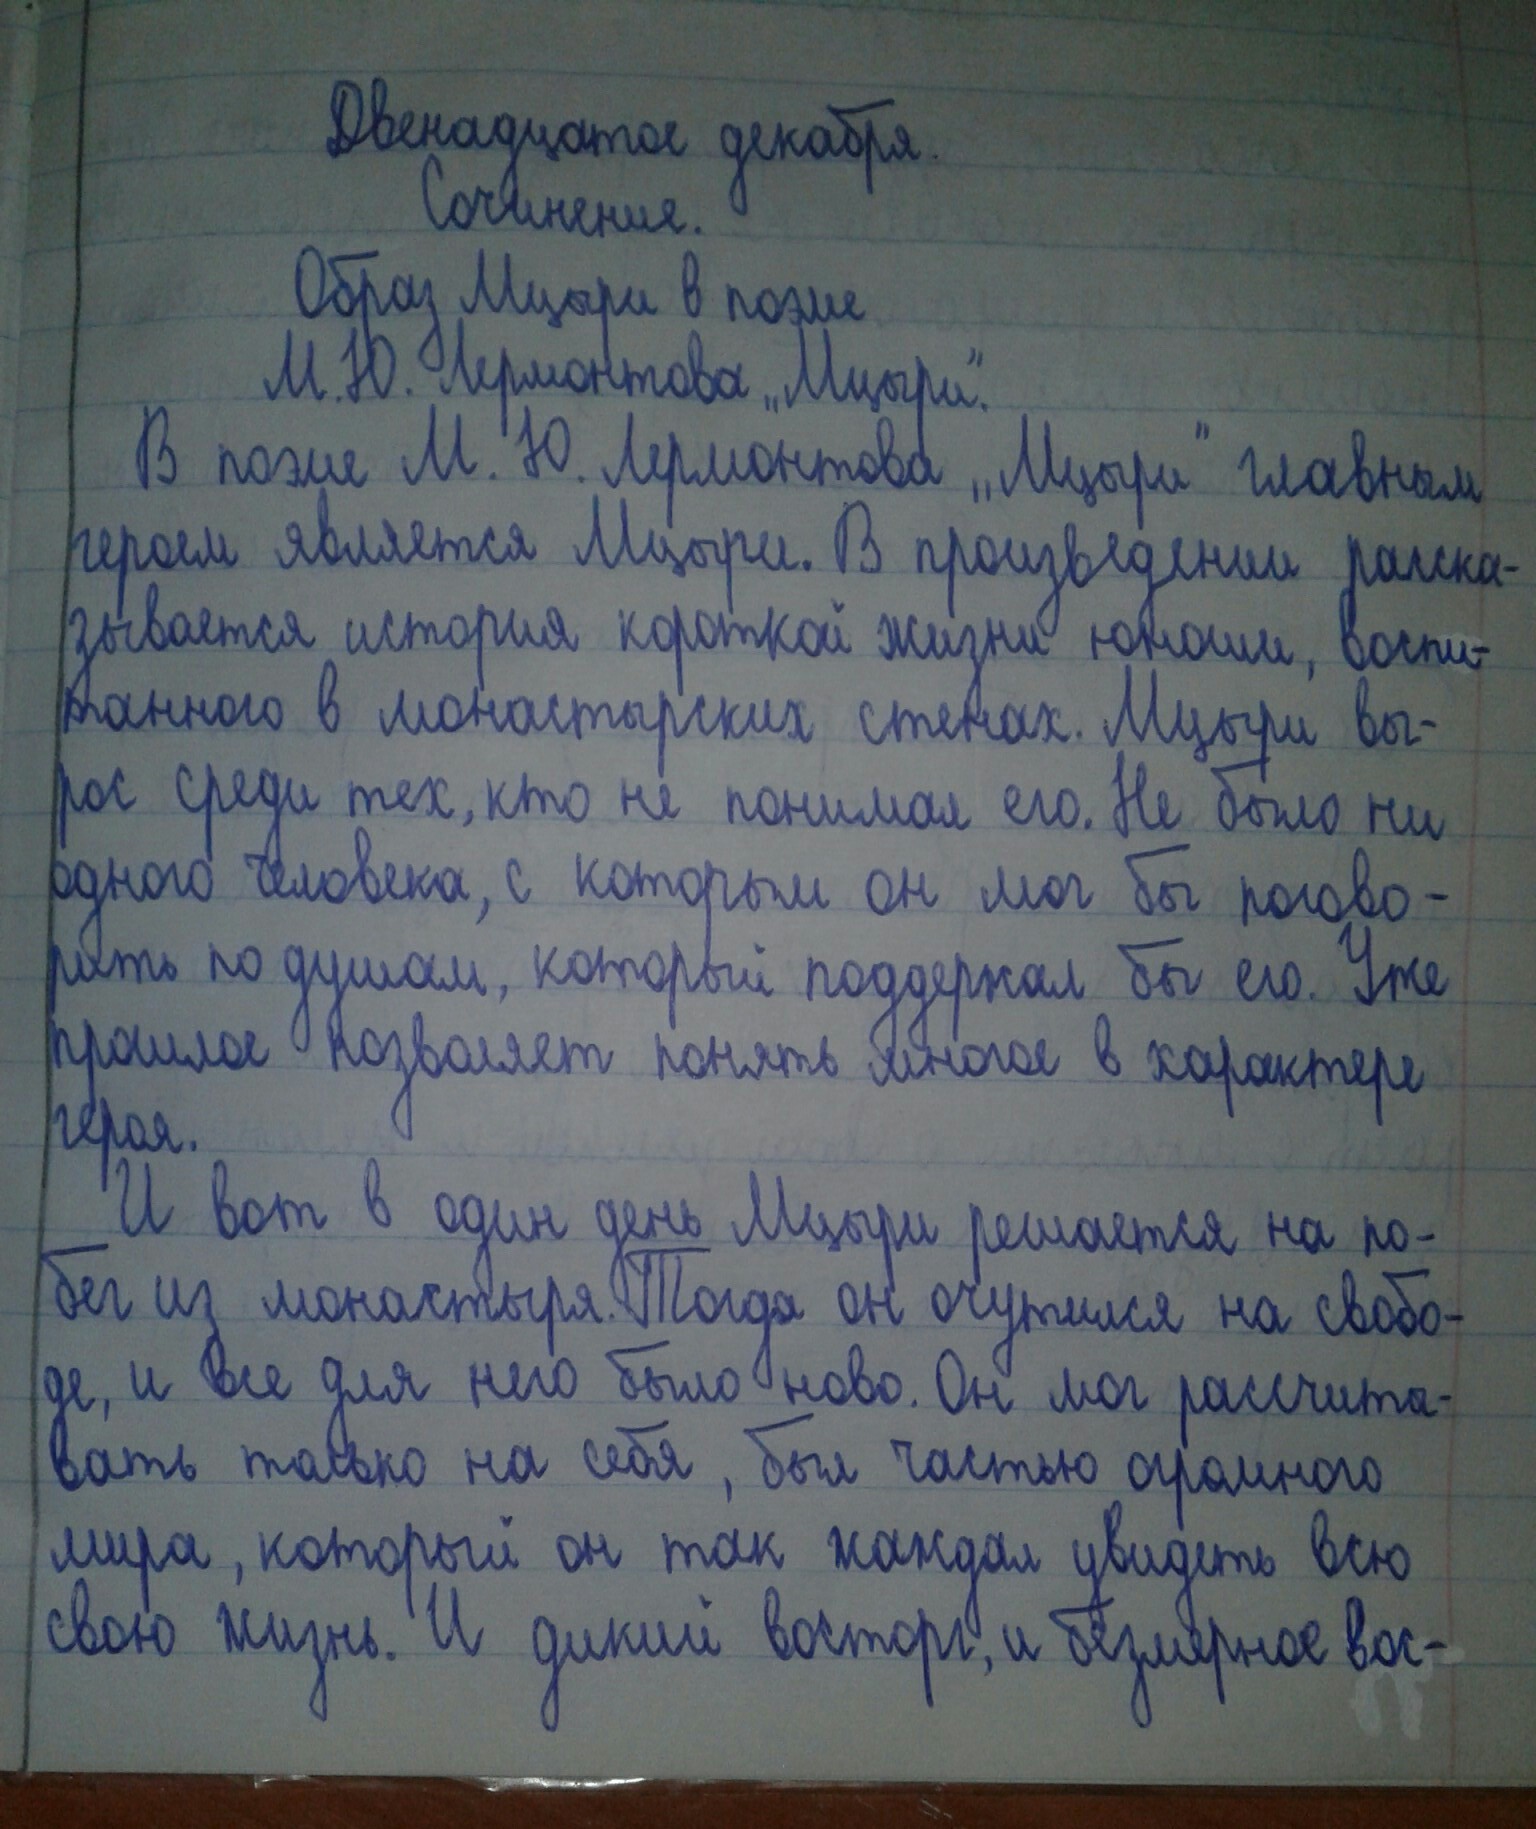 Двенадцатое декабря.
Сочинение.
Образ Мцыри в поэме
М.Ю. Лермонтова „Мцыри".
В поэме М. Ю. Лермонтова „Мцыри" главным
героем является Мцыри. В произведении расска-
зывается история короткой жизни юноши, воспи-
танного в монастырских стенах. Мцыри вы-
рос среди тех, кто не понимал его. Не было ни
одного человека, с которым он мог бы погово-
рить по душам, который поддержал бы его. Уже
прошлое позволяет понять многое в характере
героя.
И вот в один день Мцыри решается на по-
бег из монастыря. Тогда он очутился на свобо-
де, и все для него было ново. Он мог рассчиты-
вать только на себя, был частью огромного
мира, который он так жаждал увидеть всю
свою жизнь. И дикий восторг, и безмерное вос-